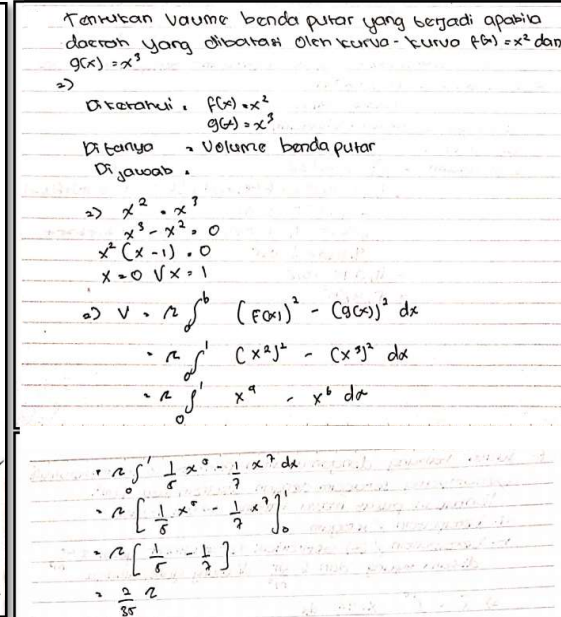 Tentukan Vaume benda putar yang berjadi apabila
daerah yang dibatasi oleh kurva-kurva f(x) = x² dan
g(x) = x³
2)
Diketahui : f(x) = x²
g(x) = x³
Ditanya = Volume benda putar
Dijawab :
2) x² = x³
x³ - x² = 0
x² (x - 1) = 0
x = 0 V x = 1
a) V = π ∫ₐᵇ (F(x))² - (g(x))² dx
= π ∫₀¹ (x²)² - (x³)² dx
= π ∫₀¹ x⁴ - x⁶ dx
= π ∫₀¹ 1/5 x⁵ - 1/7 x⁷ dx
= π [1/5 x⁵ - 1/7 x⁷]₀¹
= π [1/5 - 1/7]
= 2/35 π